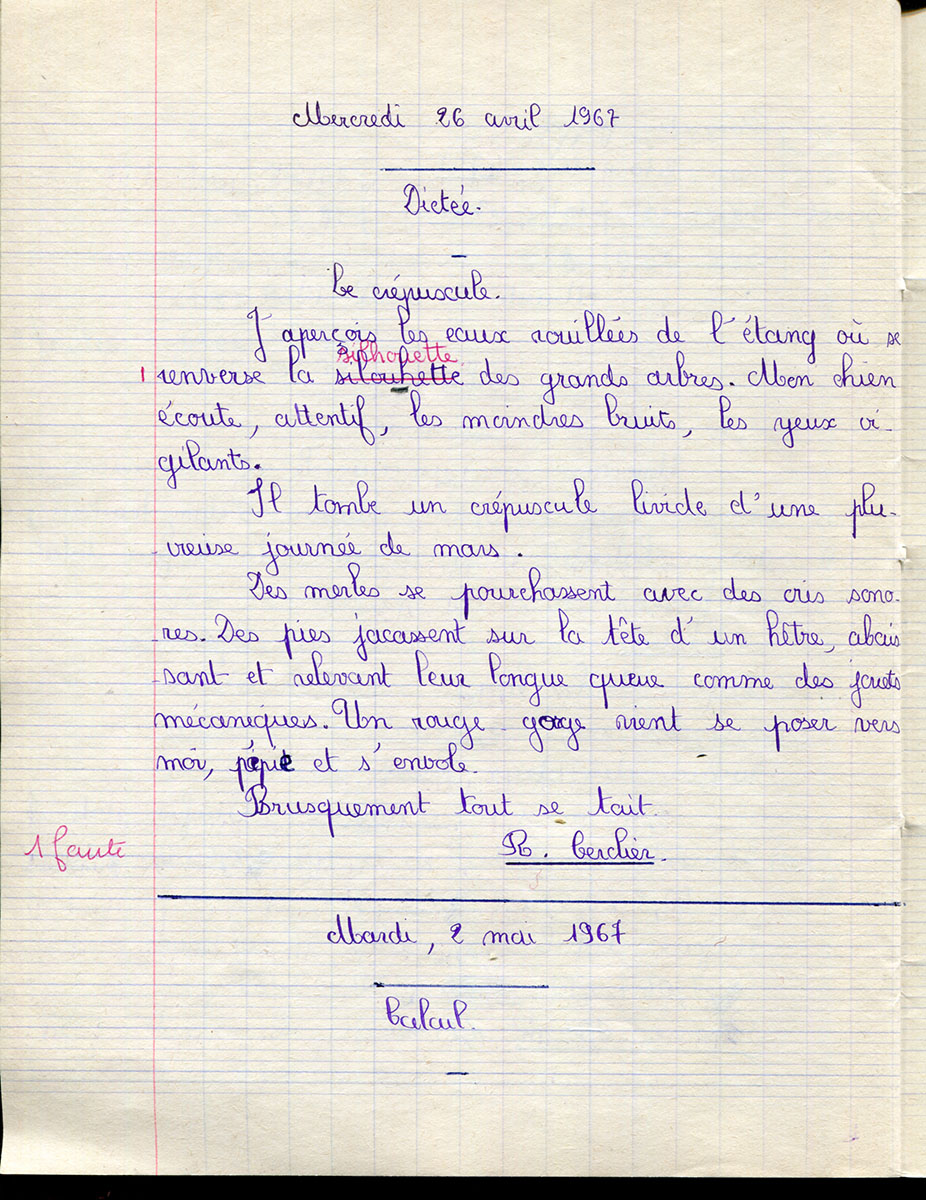 Mercredi 26 avril 1967
Dictée.
Le crépuscule.
J'aperçois les eaux rouillées de l'étang où se
silhouette
1 renverse la silouhette des grands arbres. Mon chien
écoute, attentif, les moindres bruits, les yeux vi-
gilants.
Il tombe un crépuscule livide d'une plu-
vieuse journée de mars.
Des merles se pourchassent avec des cris sono-
res. Des pies jacassent sur la tête d'un hêtre, abais
sant et relevant leur longue queue comme des jouets
mécaniques. Un rouge gorge vient se poser vers
moi, pépie et s'envole.
Brusquement tout se tait.
1 faute
R. Cerclier.
Mardi, 2 mai 1967
Calcul.